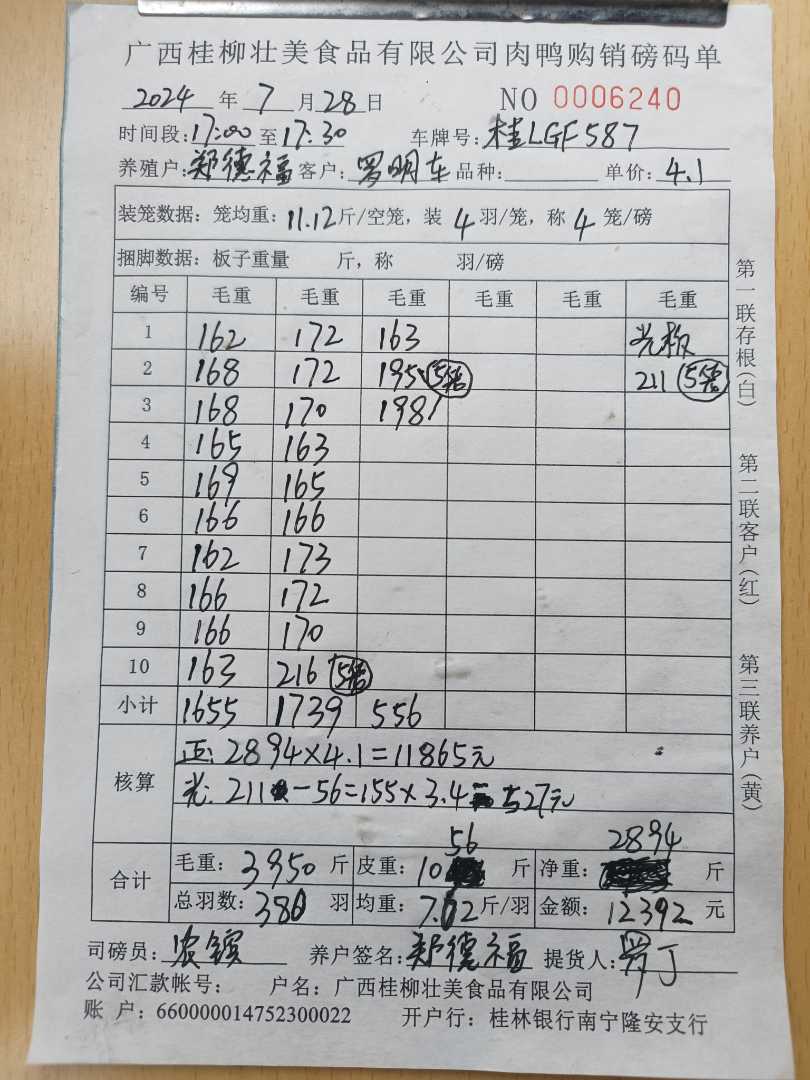 广西桂柳壮美食品有限公司肉鸭购销磅码单
2024 年 7 月 28 日 NO 0006240
时间段:17:00 至 17:30 车牌号:桂LGF587
养殖户:郑德福 客户:罗明车 品种: 单价:4.1
装笼数据:笼均重:11.12斤/空笼,装 4 羽/笼,称 4 笼/磅
捆脚数据:板子重量 斤,称 羽/磅
编号 毛重 毛重 毛重 毛重 毛重 毛重
1 162 172 163
2 168 172 195 211
3 168 170 198
4 165 163
5 169 165
6 166 166
7 162 173
8 166 172
9 166 170
10 163 216
小计 1655 1739 556
核算 正: 2894×4.1=11865元
光: 211-56=155×3.4 527元
56 2894
合计 毛重:3950 斤 皮重:10 斤 净重: 斤
总羽数: 羽 均重: 斤/羽 金额:12392 元
司磅员: 养户签名:郑德福 提货人:
公司汇款帐号: 户名:广西桂柳壮美食品有限公司
账 户:660000014752300022 开户行:桂林银行南宁隆安支行
第一联存根(白)
第二联客户(红)
第三联养户(黄)